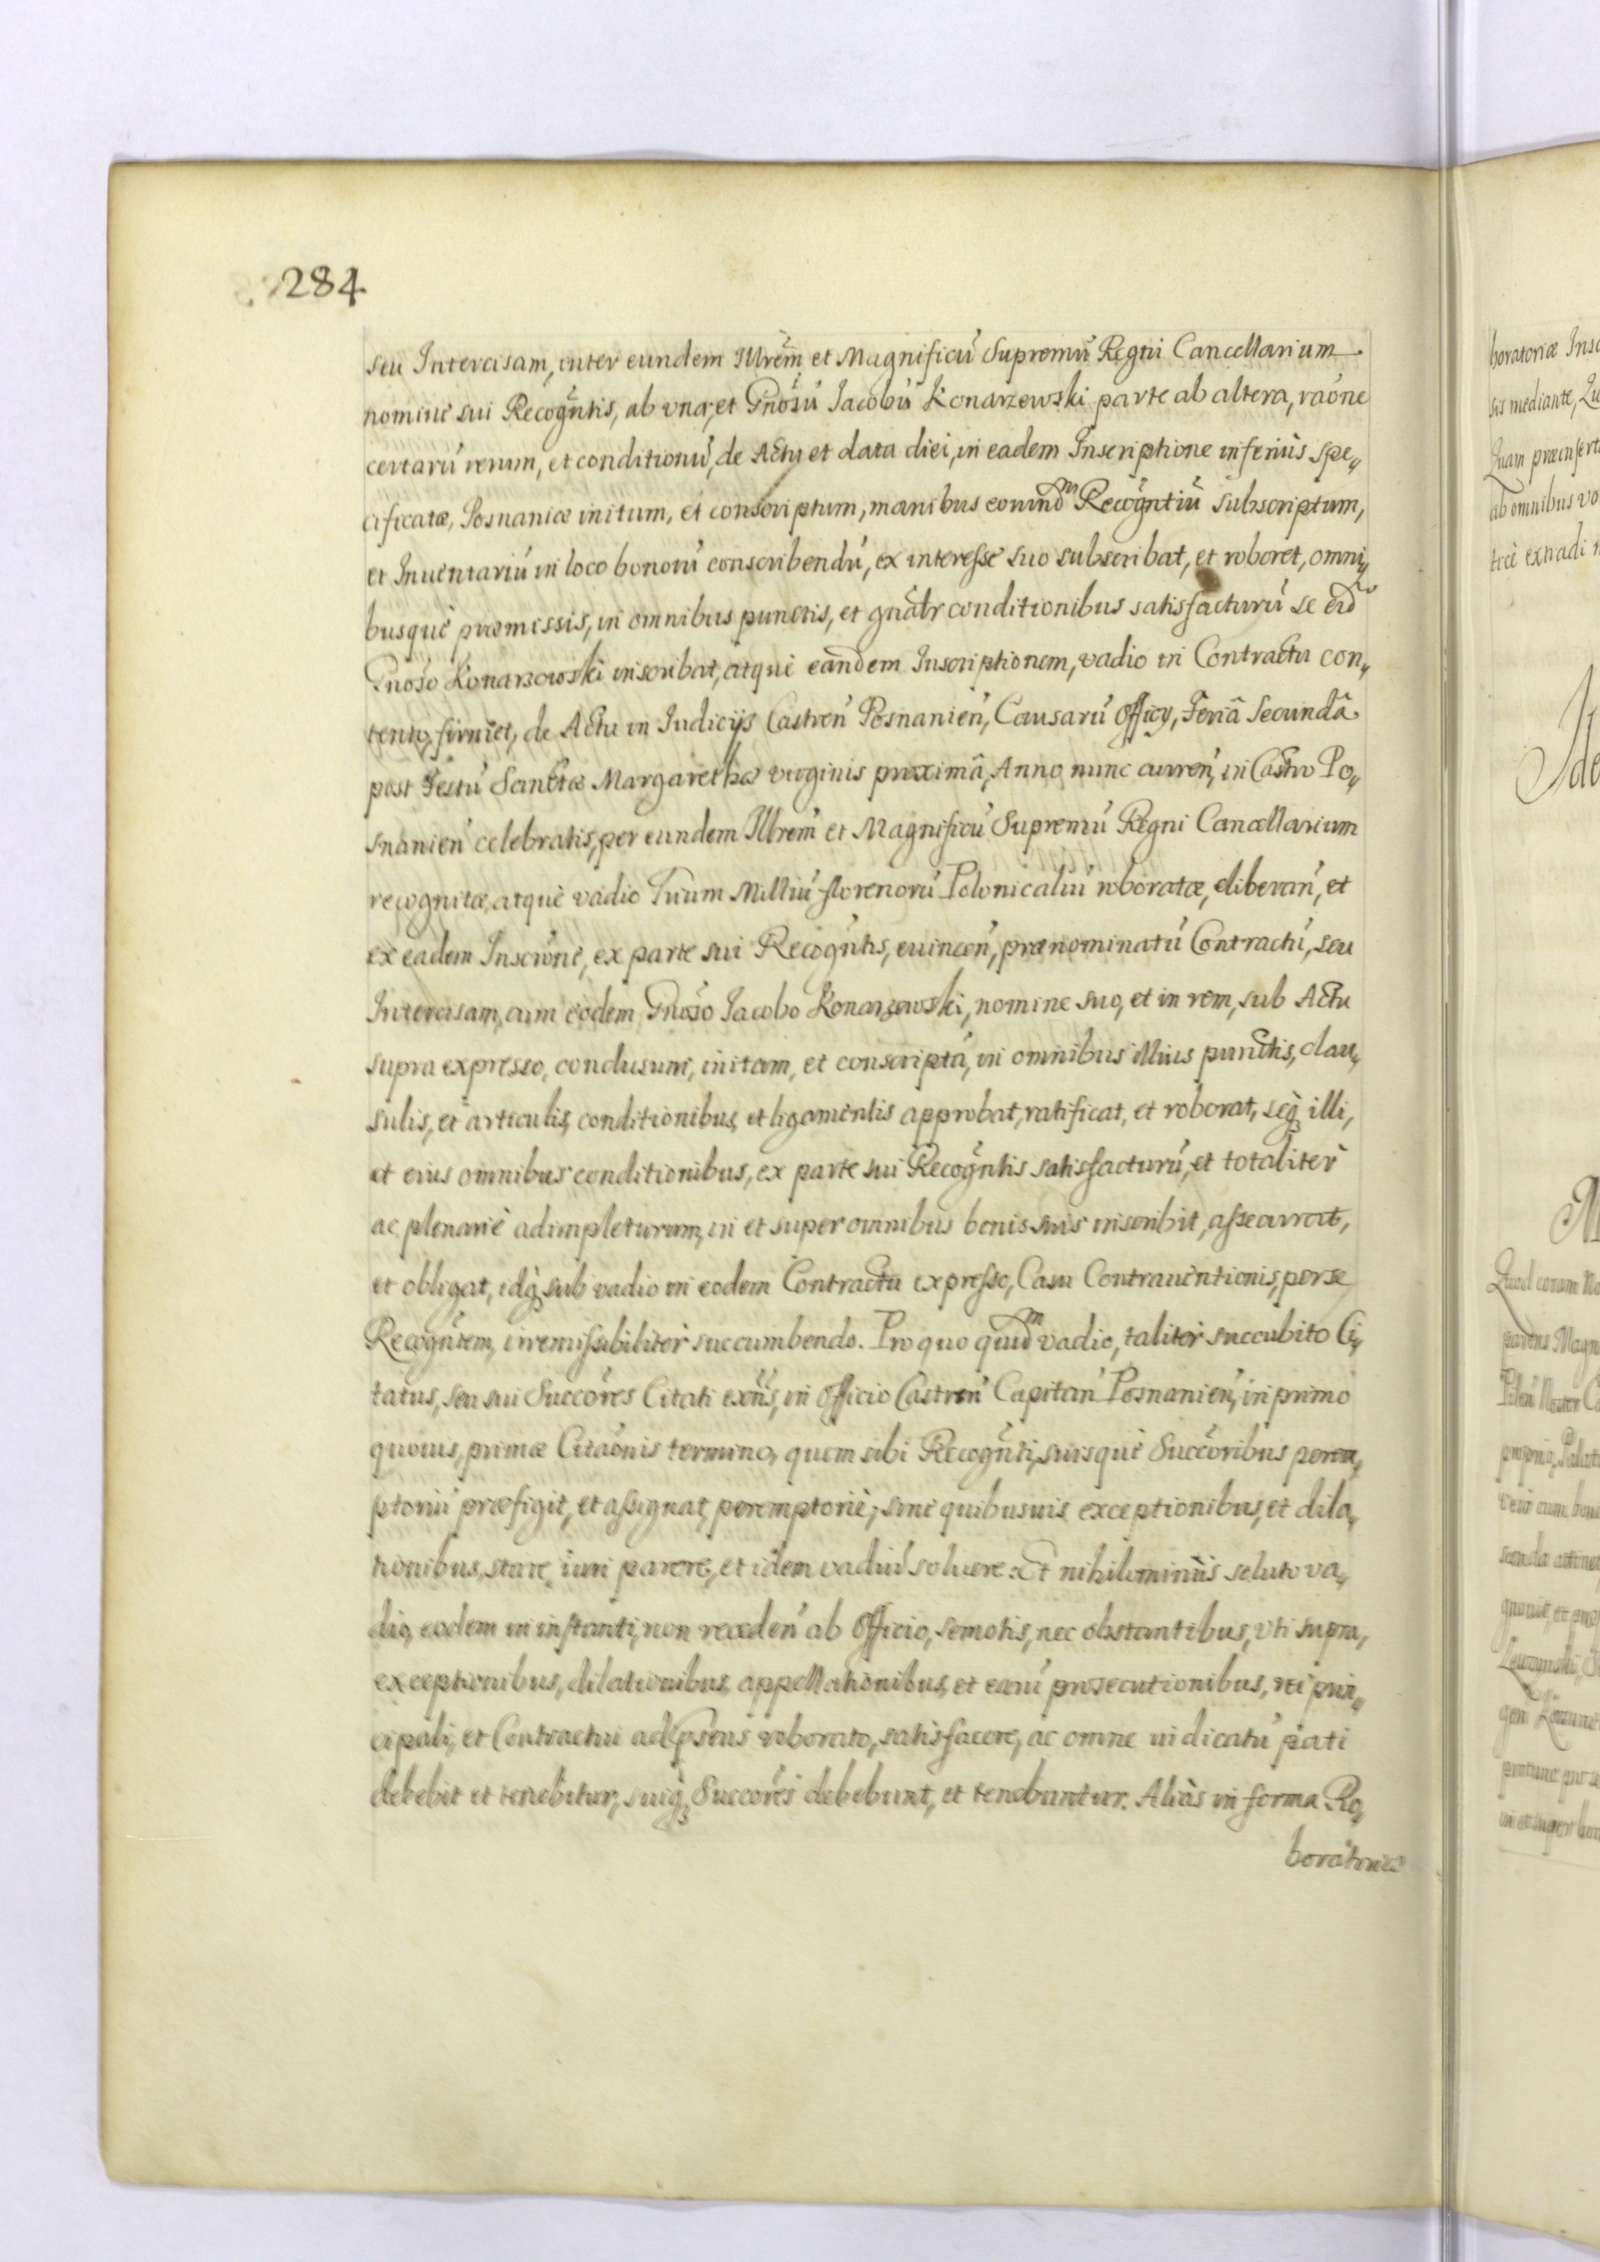 284
seu Intercisam, inter eundem Illrem̃ et Magnificũ Supremũ Regni Cancellarium
nomine sui Recogñtis, ab vna, et Gñosũ Iacobũ Konarzewski parte ab altera, raõne
certarũ rerum, et conditionũ, de Actu et data diei, in eadem Inscriptione inferiùs spe„
cificatæ, Posnaniæ initum, et conscriptum, manibus eorund̃m Recogñtiũ subscriptum,
et Inuentariũ in loco bonorũ conscribendũ, ex interesse suo subscribat, et roboret, omni„
busquè præmissis, in omnibus punctis, et gñalr conditionibus satisfacturũ se eid̃
Gñoso Konarzewski inscribat, atquè eandem Inscriptionem, vadio in Contractu con„
tento, firmet, de Actu in Iudicijs Castreñ Posnanieñ, Causarũ Officy, Feriâ Secundâ
post Festũ Sanctæ Margarethæ virginis proximâ, Anno nunc curreñ, in Castro Po„
snanieñ celebratis, per eundem Illrem̃ et Magnificũ Supremũ Regni Cancellarium
recognitæ, atquè vadio Trium Milliũ florenorũ Polonicaliũ roboratæ, liberañ, et
ex eadem Inscriõne, ex parte sui Recogñtis, euinceñ, prænominatũ Contractũ, seu
Intercisam, cum eodem Gñoso Iacobo Konarzewski, nomine suo, et in rem, sub Actu
supra expresso, conclusum, initam, et conscriptã, in omnibus illius punctis, clau„
sulis, et articulis, conditionibus, et ligamentis approbat, ratificat, et roborat, seq̃ illi,
et eius omnibus conditionibus, ex parte sui Recogñtis satisfacturũ, et totaliter
ac plenariè adimpleturum, in et super omnibus bonis suis inscribit, assecurat,
et obligat, idq̃ sub vadio in eodem Contractu expresso, Casu Contrauentionis, per se
Recogñtem, irremissibiliter succumbendo. Pro quo quid̃m vadio, taliter succubito Ci„
tatus, seu sui Succõres Citati exñs, in Officio Castreñ Capitañ Posnanieñ, in primo
quouis, primæ Citaõnis termino, quem sibi Recogñti, suisquè Succõribus perem„
ptoriũ præfigit, et assignat, peremptoriè, sine quibusuis exceptionibus, et dila„
tionibus, stare, iuri parere, et idem vadiũ soluere: Et nihilominùs soluto va„
dio, eodem in instanti, non recedeñ ab Officio, semotis, nec obstantibus, vti supra,
exceptionibus, dilationibus, appellationibus, et earũ prosecutionibus, rei prin„
cipali, et Contractui ad roborato, satisfacere, ac omne iudicatũ pati
debebit et tenebitur, suiq̃ Succõres debebunt, et tenebuntur. Aliàs in forma Ro„
boratoriæ